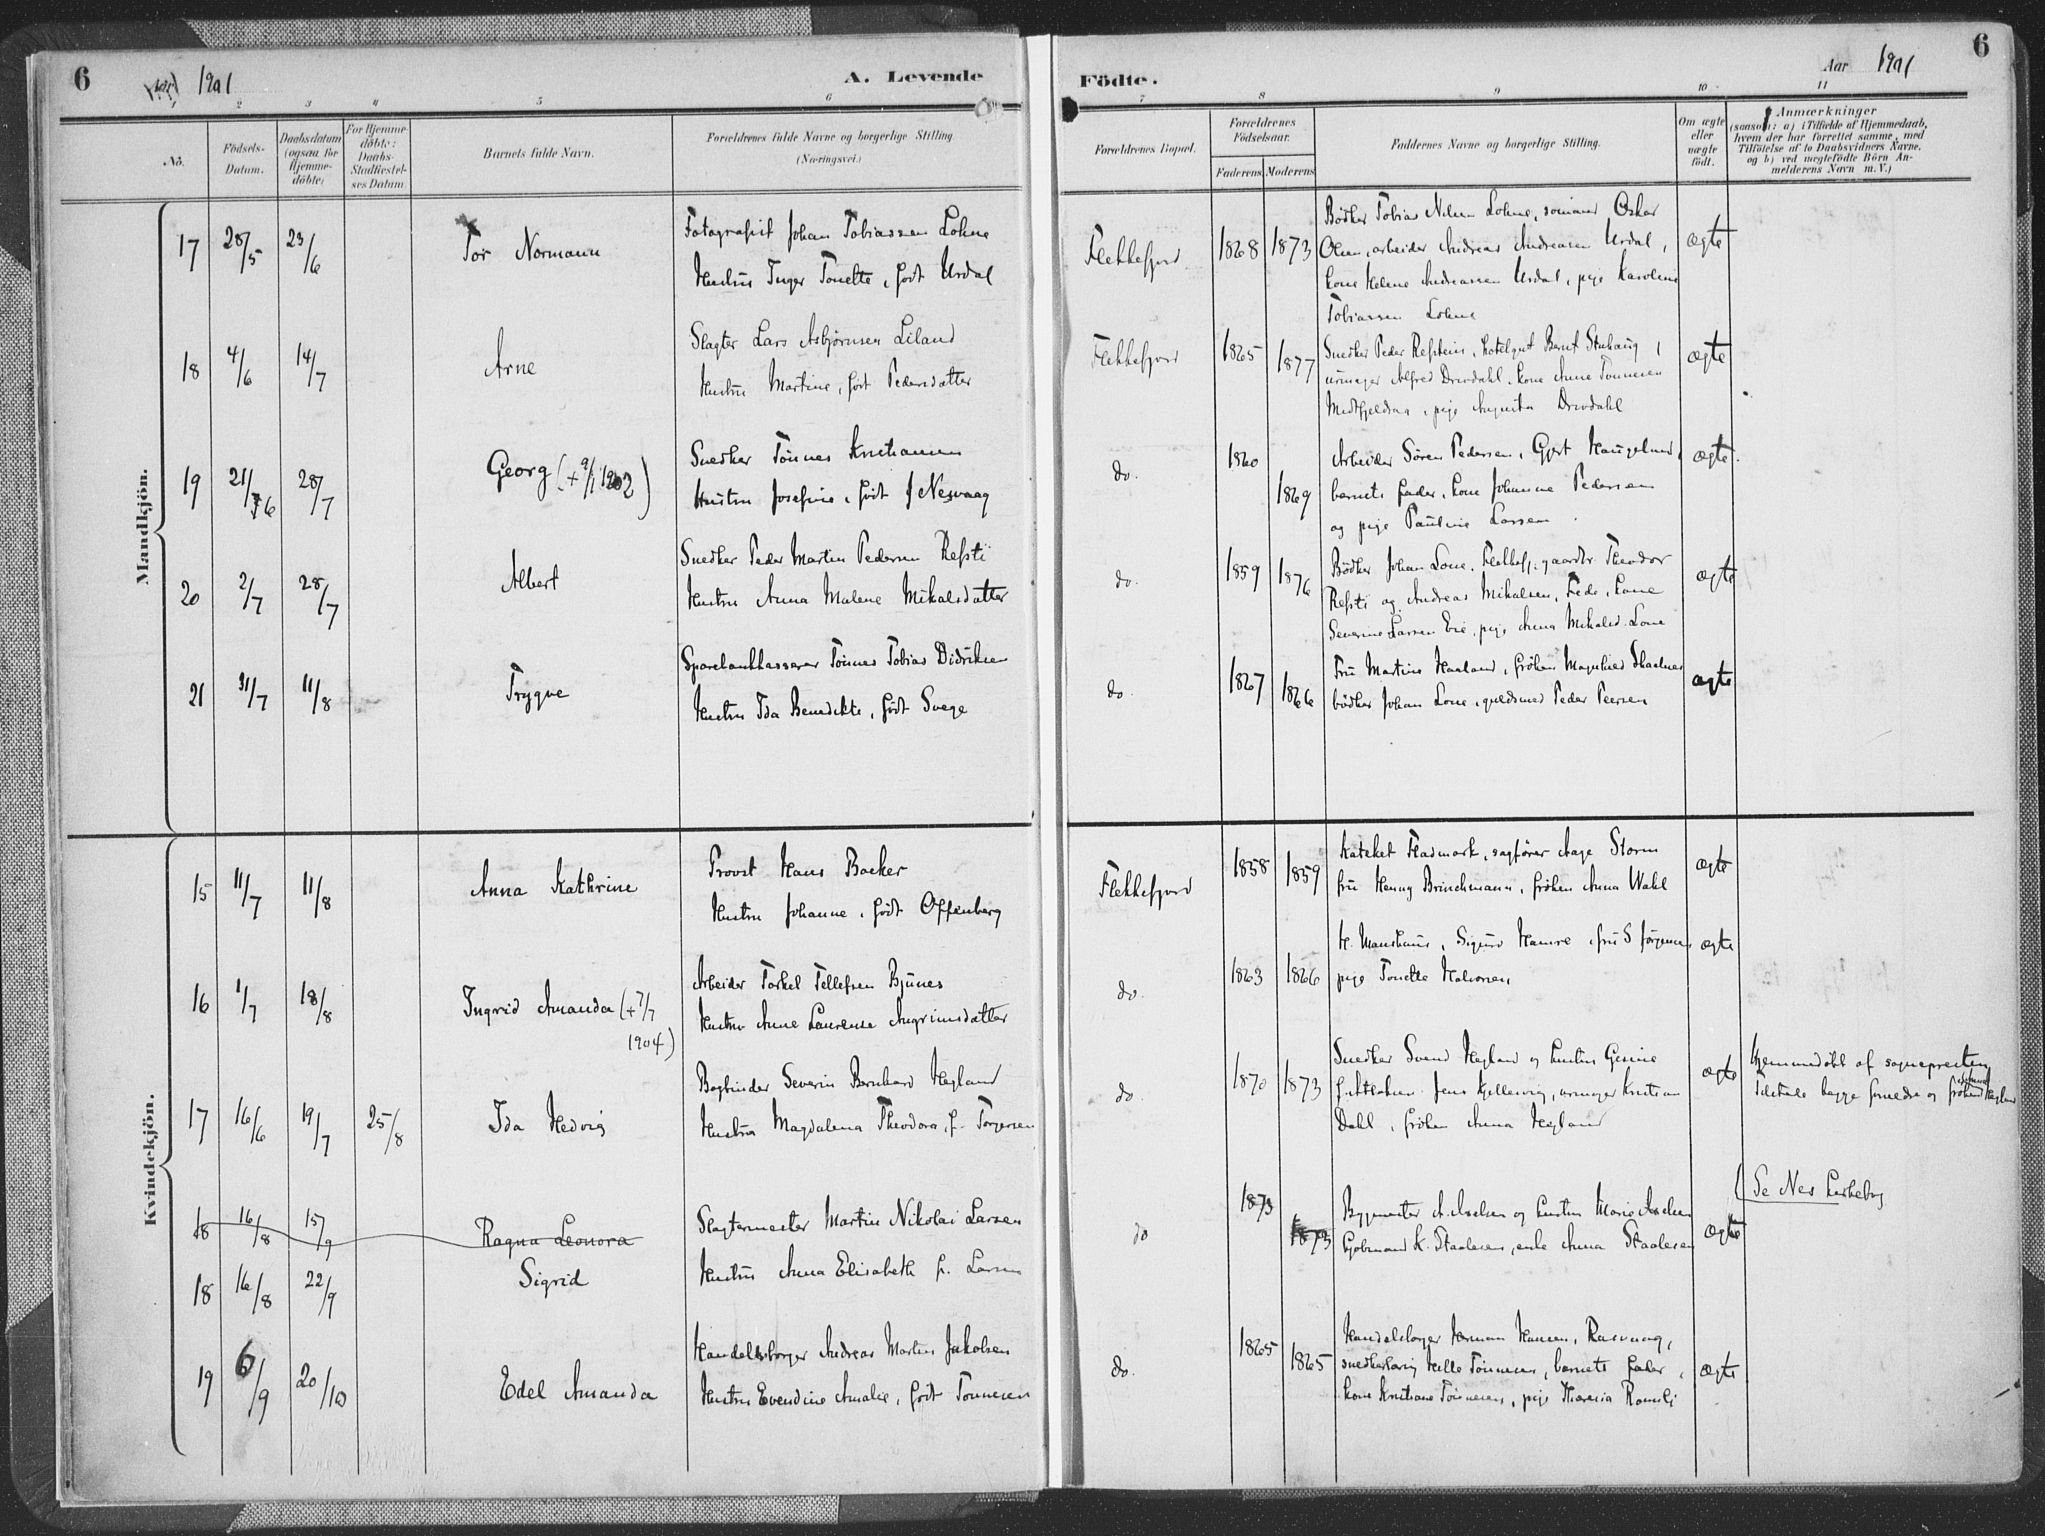 6 1901 A. Levende Födte. Aar 1901 6
2 3 4 5 6 7 8 9 10 11
No.
Födsels-
Datum.
Daabsdatum
(ogsaa for
Hjemme-
döbte)
For Hjemme-
döbte:
Daabs-
Stadfæstel-
ses Datum
Barnets fulde Navn.
Forældrenes fulde Navne og borgerlige Stilling.
(Næringsvei.)
Forældrenes Bopæl.
Forældrenes
Födselsaar.
Faderens Moderens
Faddernes Navne og borgerlige Stilling.
Om ægte
eller
uægte
födt.
Anmærkninger
(saasom: a) i Tilfælde af Hjemmedaab,
hvem der har forrettet samme, med
Tilföielse af to Daabsvidners Navne.
og b) ved uægtefödte Börn An-
melderens Navn m. V.)
Mandkjön.
17 28/5 23/6 Tor Normann
Fotografist Johan Tobiassen Lohne
Hustru Inger Tonette, født Urdal
Flekkefjord 1868 1873
Bødker Tobias Nilsen Lohne, sømand Oskar
Olsen, arbeider Andreas Andreasen Urdal,
kone Helene Andreassen Urdal, pige Karoline
Tobiassen Lohne
ægte
18 4/6 14/7 Arne
Slagter Lars Asbjørnsen Liland
Hustru Martine, født Pedersdatter
Flekkefjord 1865 1877
Snedker Peder Refstein, hotelgut Bernt Stuhaug,
urmager Alfred Drivdahl, kone Anne Tønnesen
pige Augusta Drivdahl
ægte
19 21/6 28/7 Georg (+ 9/1 1902)
Snedker Tönnes Kristiansen
Hustru Josefine, født Nesvaag
do. 1860 1869
Arbeider Sören Pedersen, Gjert Haugelund,
barnets fader, kone Johanne Pedersen
og pige Pauline Larsen.
ægte.
20 2/7 28/7 Albert
Snedker Peder Martin Pedersen Refsti
Hustru Anna Malene Mikalsdatter
do. 1859 1876
Bödker Johan Lone, Flekkefj. gaardbr. Theodor
Refsti og Andreas Mikalsen, Fede, kone
Severine Larsen Eie, pige Anna Mikalsd. Lone
ægte
21 31/7 11/8 Trygve
Sparebankkasserer Tönnes Tobias Didriksen
Hustru Ida Benedikte, født Svege
do. 1867 1866
Fru Martine Haaland, fröken Magnhild
bödker Johan Lone, guldsmed Peder Peersen
ægte
Kvindekjön.
15 11/7 11/8 Anna Kathrine
Provst Hans Backer
Hustru Johanne, født Offenberg
Flekkefjord 1858 1859
Kateket Fladmark, sagfører Aage Storm
fru Henny Brinchmann, fröken Anna Wahl
ægte
16 1/7 18/8 Ingrid Amanda (+ 7/7
1904)
Arbeider Torkel Tellefsen Bjunes
Hustru Anne Laurense Angrimsdatter
do. 1863 1866
H. Monshaus, Sigurd Hamre, fru S Jørgensen
pige Tonette Halvorsen
ægte
17 16/6 19/7 25/8 Ida Hedvig
Bogbinder Severin Bernhard Hegland
Hustru Magdalena Theodora, f. Torgersen
do. 1870 1873
Snedker Svend Hegland og hustru Gesine
Jens Kjellesvig, urmager Kristian
Dahl, fröken Anna Hegland
ægte
Hjemmedøbt af sognepresten
Tilstede begge forældre og frøken Hegland
18 16/8 15/9 Ragna Leonora
Slagtermester Martin Nikolai Larsen
18 16/8 22/9 Sigrid
Hustru Anna Elisabeth f. Larsen
do 1873 1873
Bygmester A. Axelsen og hustru Marie Axelsen
Kjøbmand K. Staalesen, enke Anna Staalesen
ægte
(Se Nes kirkebog
19 6/9 20/10 Edel Amanda
Handelsborger Andreas Martin Jakobsen
Hustru Evendine Amalie, født Tönnesen
do. 1865 1865
Handelsborger Herman Hansen, Rasvaag,
Helle Tönnesen, barnets fader,
kone Kristiane Tönnesen, pige Theresia Romsli
ægte